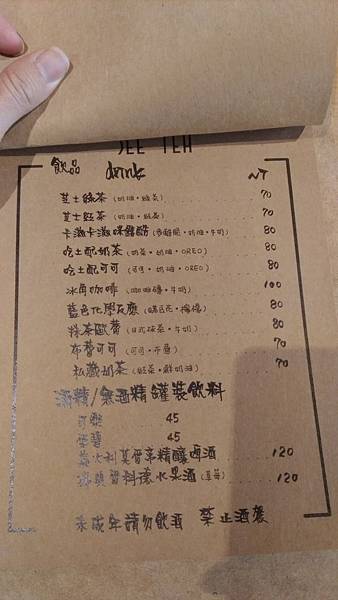 飲品 drink NT
芝士綠茶（奶油・綠茶） 70
芝士紅茶（奶油・紅茶） 70
卡滋卡滋 80
吃土配奶茶（奶茶・奶油・OREO） 80
吃土配可可（可可・奶油・OREO） 80
冰角咖啡（咖啡磚・牛奶） 100
藍色化學反應（ 檸檬） 80
抹茶歐蕾（日式抹茶・牛奶） 80
布蕾可可（可可・布蕾） 70
私藏奶茶（紅茶・鮮奶油） 70
酒精/無酒精罐裝飲料
可樂 45
雪碧 45
精釀啤酒 120
水果酒（草莓） 120
未成年請勿飲酒 禁止酒駕